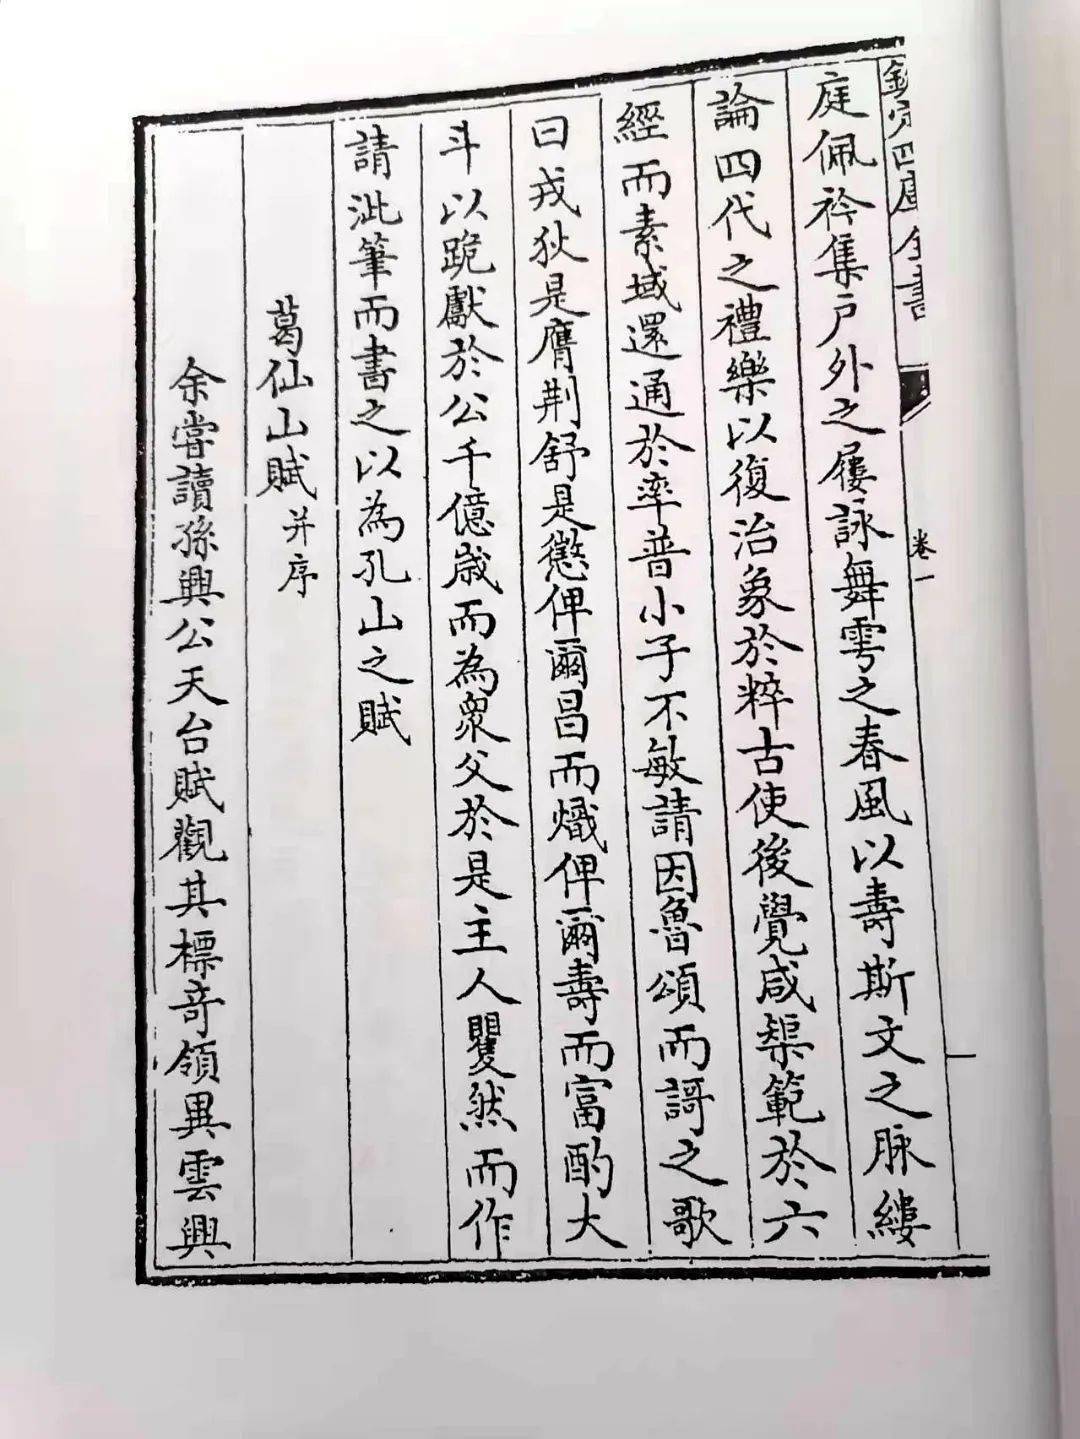 欽定四庫全書
卷一
庭佩衿集戶外之屨詠舞雩之春風以壽斯文之脉縷
論四代之禮樂以復治象於粹古使後覺咸榘範於六
經而素域還通於率普小子不敏請因魯頌而謌之歌
曰戎狄是膺荆舒是懲俾爾昌而熾俾爾壽而富酌大
斗以跪獻於公千億歲而為衆父於是主人矍然而作
請泚筆而書之以為孔山之賦
葛仙山賦并序
余嘗讀孫興公天台賦觀其標奇領異雲興